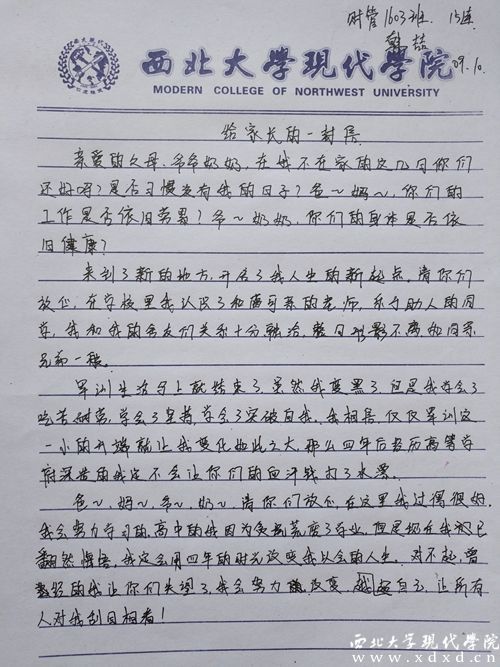 财管1603班 15连
09.10
西北大学现代学院
MODERN COLLEGE OF NORTHWEST UNIVERSITY
给家长的一封信
亲爱的父母,爷爷奶奶,在我不在家的这几日你们
还好吗?是否习惯没有我的日子?爸~妈~,你们的
工作是否依旧劳累?爷~奶奶,你们的身体是否依
旧健康?
来到了新的地方,开启了我人生的新起点。请你们
放心,在学校里我认识了和蔼可亲的老师,乐于助人的同
学,我和我的舍友们关系十分融洽,整日形影不离如同亲
兄弟一般。
军训生活马上就结束了,虽然我变黑了,但是我学会了
吃苦耐劳,学会了坚持,学会了突破自我。我相信,仅仅军训这
一小的开端就让我变化如此之大,那么四年后经历高等学
府深造的我定不会让你们的血汗钱打了水漂。
爸~,妈~,爷~,奶~,请你们放心,在这里我过得很好,
我会努力学习的,高中的我因为贪玩荒废了学业,但是现在我已
翻然悔悟,我定会用四年的时光改变我以后的人生。对不起,曾
经的我让你们失望了,我会努力改变,超越自己,让所有
人对我刮目相看!
西北大学现代学院
www.xdxd.cn